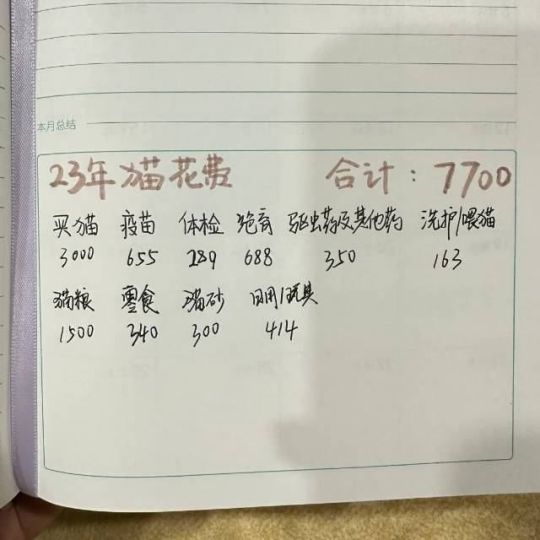 本月总结
23年猫花费 合计：7700
买猫 疫苗 体检 绝育 驱虫药及其他药 洗护/喂猫
3000 655 289 688 350 163
猫粮 零食 猫砂 日用/玩具
1500 340 300 414